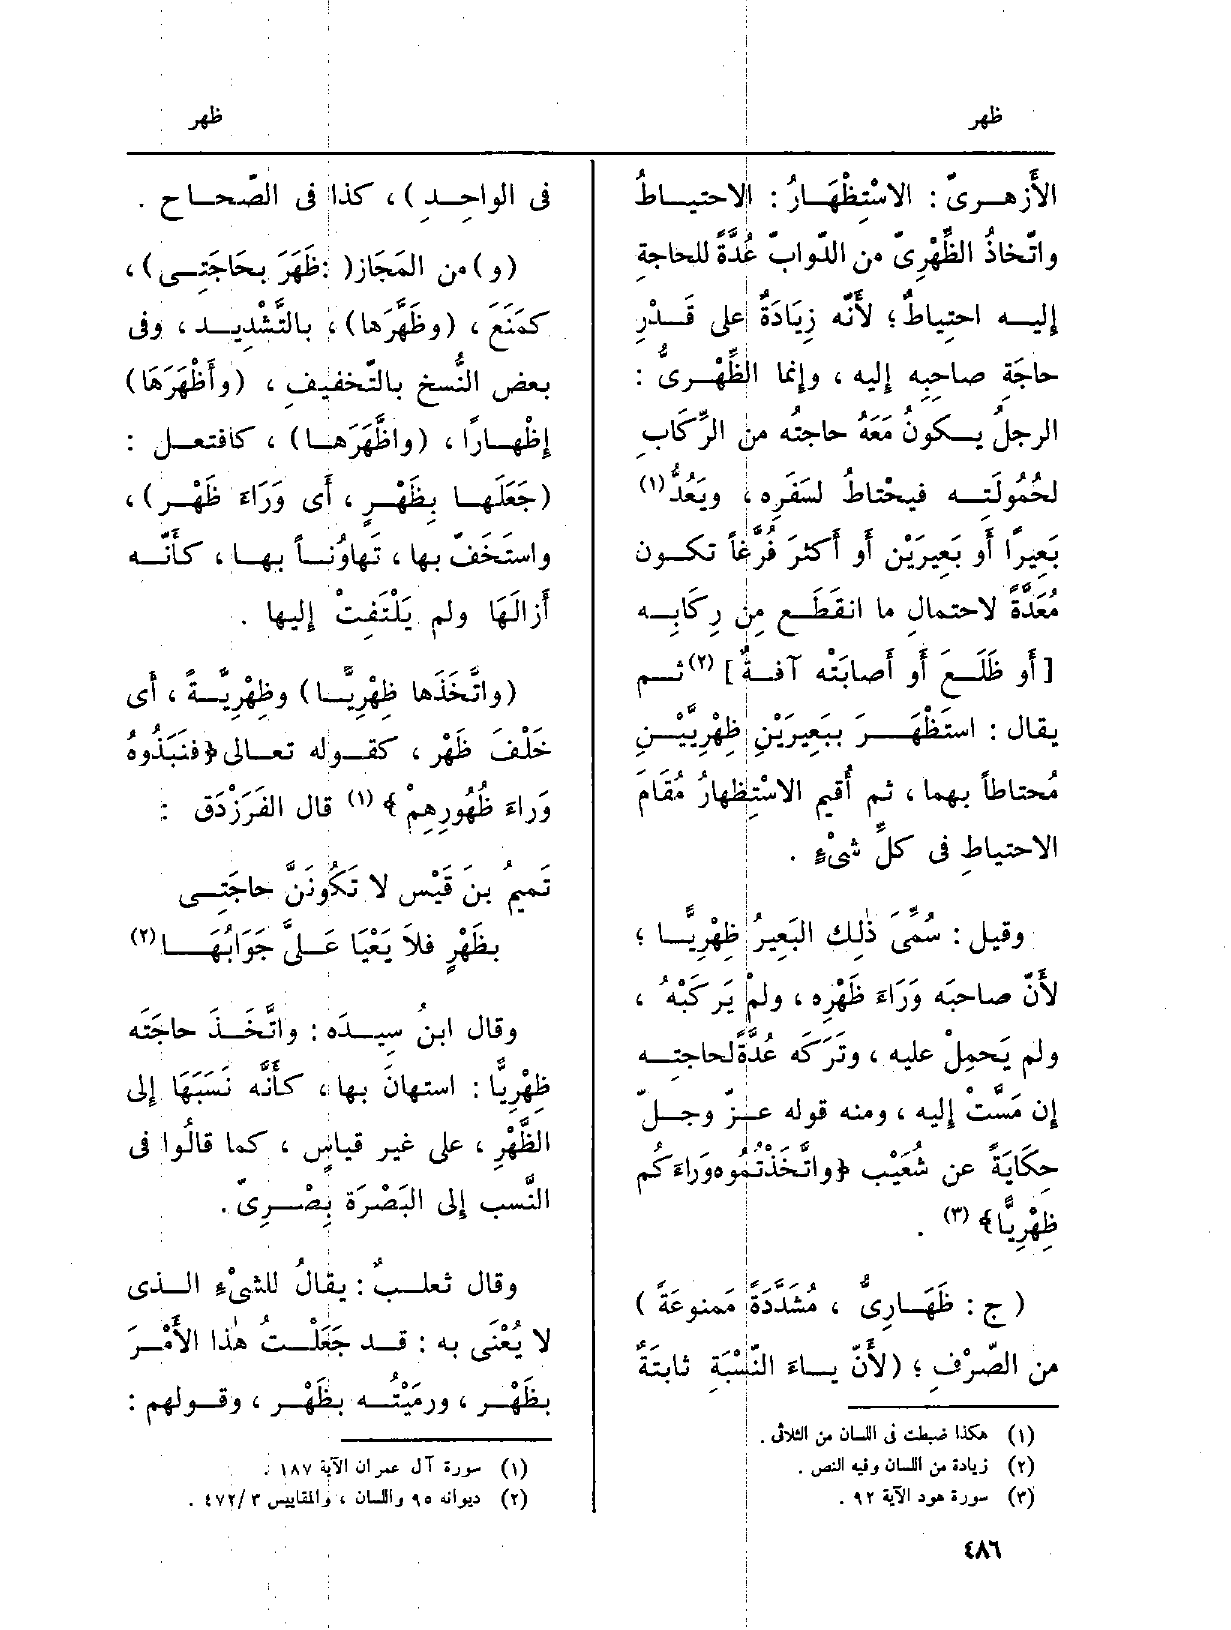 ظهر
ظهر
الأَزهـرىّ : الاسْتِظْهَـارُ : الاحتيـاطُ
واتّخاذُ الظِّهْرِىّ من الدّوابّ عُدَّةً للحاجةِ
إليـه احتِياطٌ ؛ لأَنّه زِيَادَةٌ على قَـدْرِ
حاجَةِ صاحِبِه إليه ، وإنما الظِّهْـرِىُّ :
الرجلُ يـكونُ مَعَهُ حاجتُه من الرِّكَابِ
لحُمُولَتِـه فيحْتاطُ لسَفَرِه ، ويَعُدُّ (١)
بَعِيرًا أو بَعِيرَيْن أو أكثرَ فُرَّغاً تكـون
مُعَدَّةً لاحتمالِ ما انقَطَع مِن رِكَابِـه
[ أو ظَلَـعَ أو أَصابَتْه آفـةٌ ] (٢) ثـم
يقال : استَظْهَـرَ ببَعِيرَيْنِ ظِهْرِيَّيْـنِ
مُحتاطاً بهما ، ثم أُقيم الاسْتِظهارُ مُقَامَ
الاحتياطِ فى كلِّ شىْءٍ .
وقيل : سُمِّىَ ذٰلِك البَعيرُ ظِهْرِيًّـا ؛
لأَنّ صاحبَه وَرَاءَ ظَهْرِه ، ولمْ يَرْكَبْهُ ،
ولم يَحمِلْ عليه ، وتَرَكَه عُدَّةً لحاجتِـه
إن مَسَّتْ إليه ، ومنه قوله عـزّ وجـلّ
حِكَايَةً عن شُعَيْب ﴿واتَّخَذْتُمُوه وَرَاءَكُم
ظِهْرِيًّا﴾ (٣) .
( ج : ظَهَـارِىُّ ، مُشَدَّدَةً ممنوعَةً )
من الصّرْفِ ؛ (لأَنّ يـاءَ النِّسْبَةِ ثابتَةٌ
(١) هكذا ضبطت فى اللسان من الثلاثى .
(٢) زيادة من اللسان وفيه النص .
(٣) سورة هود الآية ٩٢ .
فى الواحِـدِ ) ، كذا فى الصّحـاح .
(و) من المَجَاز( :ظَهَرَ بحَاجَتِـى) ،
كمَنَعَ ، (وظَهَّرَها) ، بالتَّشْدِيـد ، وفى
بعض النُّسخ بالتّخفيفِ ، (وأَظْهَرَهَا)
إظْهـارًا ، (واظَّهَرَهـا) ، كافتعـل :
(جَعَلَهـا بِظَهْـرٍ ، أَى وَرَاءَ ظَهْـر) ،
واستَخَفّ بها ، تَهاوُنـاً بهـا ، كأَنَّـه
أَزالَهَا ولم يَلْتَفِتْ إليها .
(واتَّخَذَها ظِهْرِيًّـا) وظِهْرِيَّـةً ، أَى
خَلْفَ ظَهْر ، كقـوله تعـالى ﴿فنَبَذُوهُ
وَراءَ ظُهُورِهِمْ﴾ (١) قال الفَرَزْدَق :
تَميمُ بنَ قَيْس لا تَكُونَنَّ حاجَتِـى
بظَهْرٍ فلاَ يَعْيَا عَـلىَّ جَوَابُهَـا (٢)
وقال ابنُ سِيـدَه : واتَّخَـذَ حاجَتَه
ظِهْرِيًّا : استهانَ بها ، كأَنَّه نَسَبَهَا إلى
الظَّهْرِ ، على غير قياسٍ ، كما قالُوا فى
النَّسب إلى البَصْرَة بِصْـرِىّ .
وقال ثعلـبٌ : يقالُ للشىْءِ الـذى
لا يُعْنَى به : قـد جَعَلْـتُ هٰذا الأَمْـرَ
بظَهْـر ، ورمَيْتُـه بظَهْـر ، وقـولهم :
(١) سورة آل عمران الآية ١٨٧ .
(٢) ديوانه ٩٥ واللسان ، والمقاييس ٤٧٢/٣ .
٤٨٦